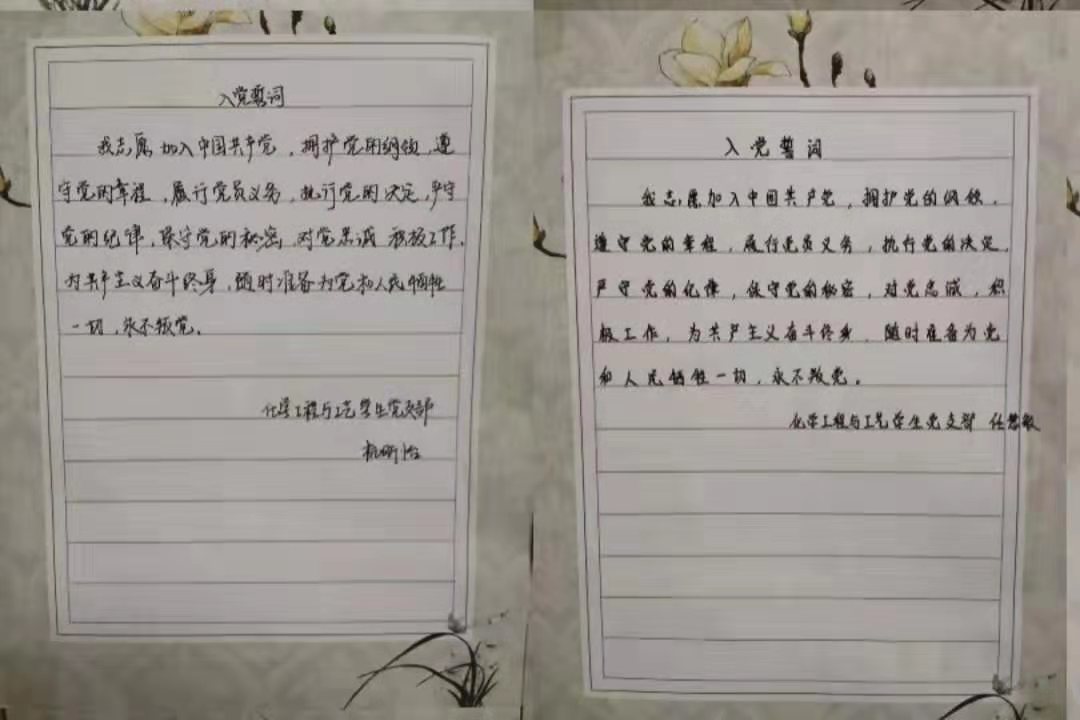 入党誓词
我志愿加入中国共产党，拥护党的纲领，遵
守党的章程，履行党员义务，执行党的决定，严守
党的纪律，保守党的秘密，对党忠诚，积极工作，
为共产主义奋斗终身，随时准备为党和人民牺牲
一切，永不叛党。
化学工程与工艺学生党支部
入党誓词
我志愿加入中国共产党，拥护党的纲领，
遵守党的章程，履行党员义务，执行党的决定，
严守党的纪律，保守党的秘密，对党忠诚，积
极工作，为共产主义奋斗终身，随时准备为党
和人民牺牲一切，永不叛党。
化学工程与工艺学生党支部 任